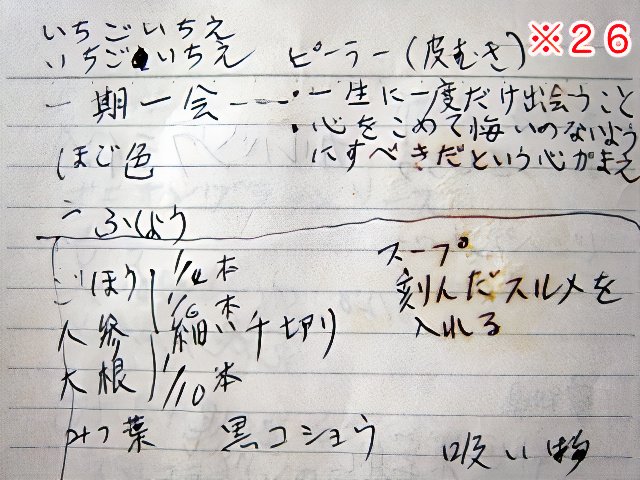 ※26
いちごいちえ
いちごいちえ
ピーラー(皮むき)
一期一会 ---・一生に一度だけ出会うこと
・心をこめて悔いのないよう
にすべきだという心がまえ
ほご色
ふよう
ごぼう 1/4本
人参 1/6本 細い千切り
大根 1/10本
みつ葉 黒コショウ
スープ
刻んだスルメを
入れる
吸い物